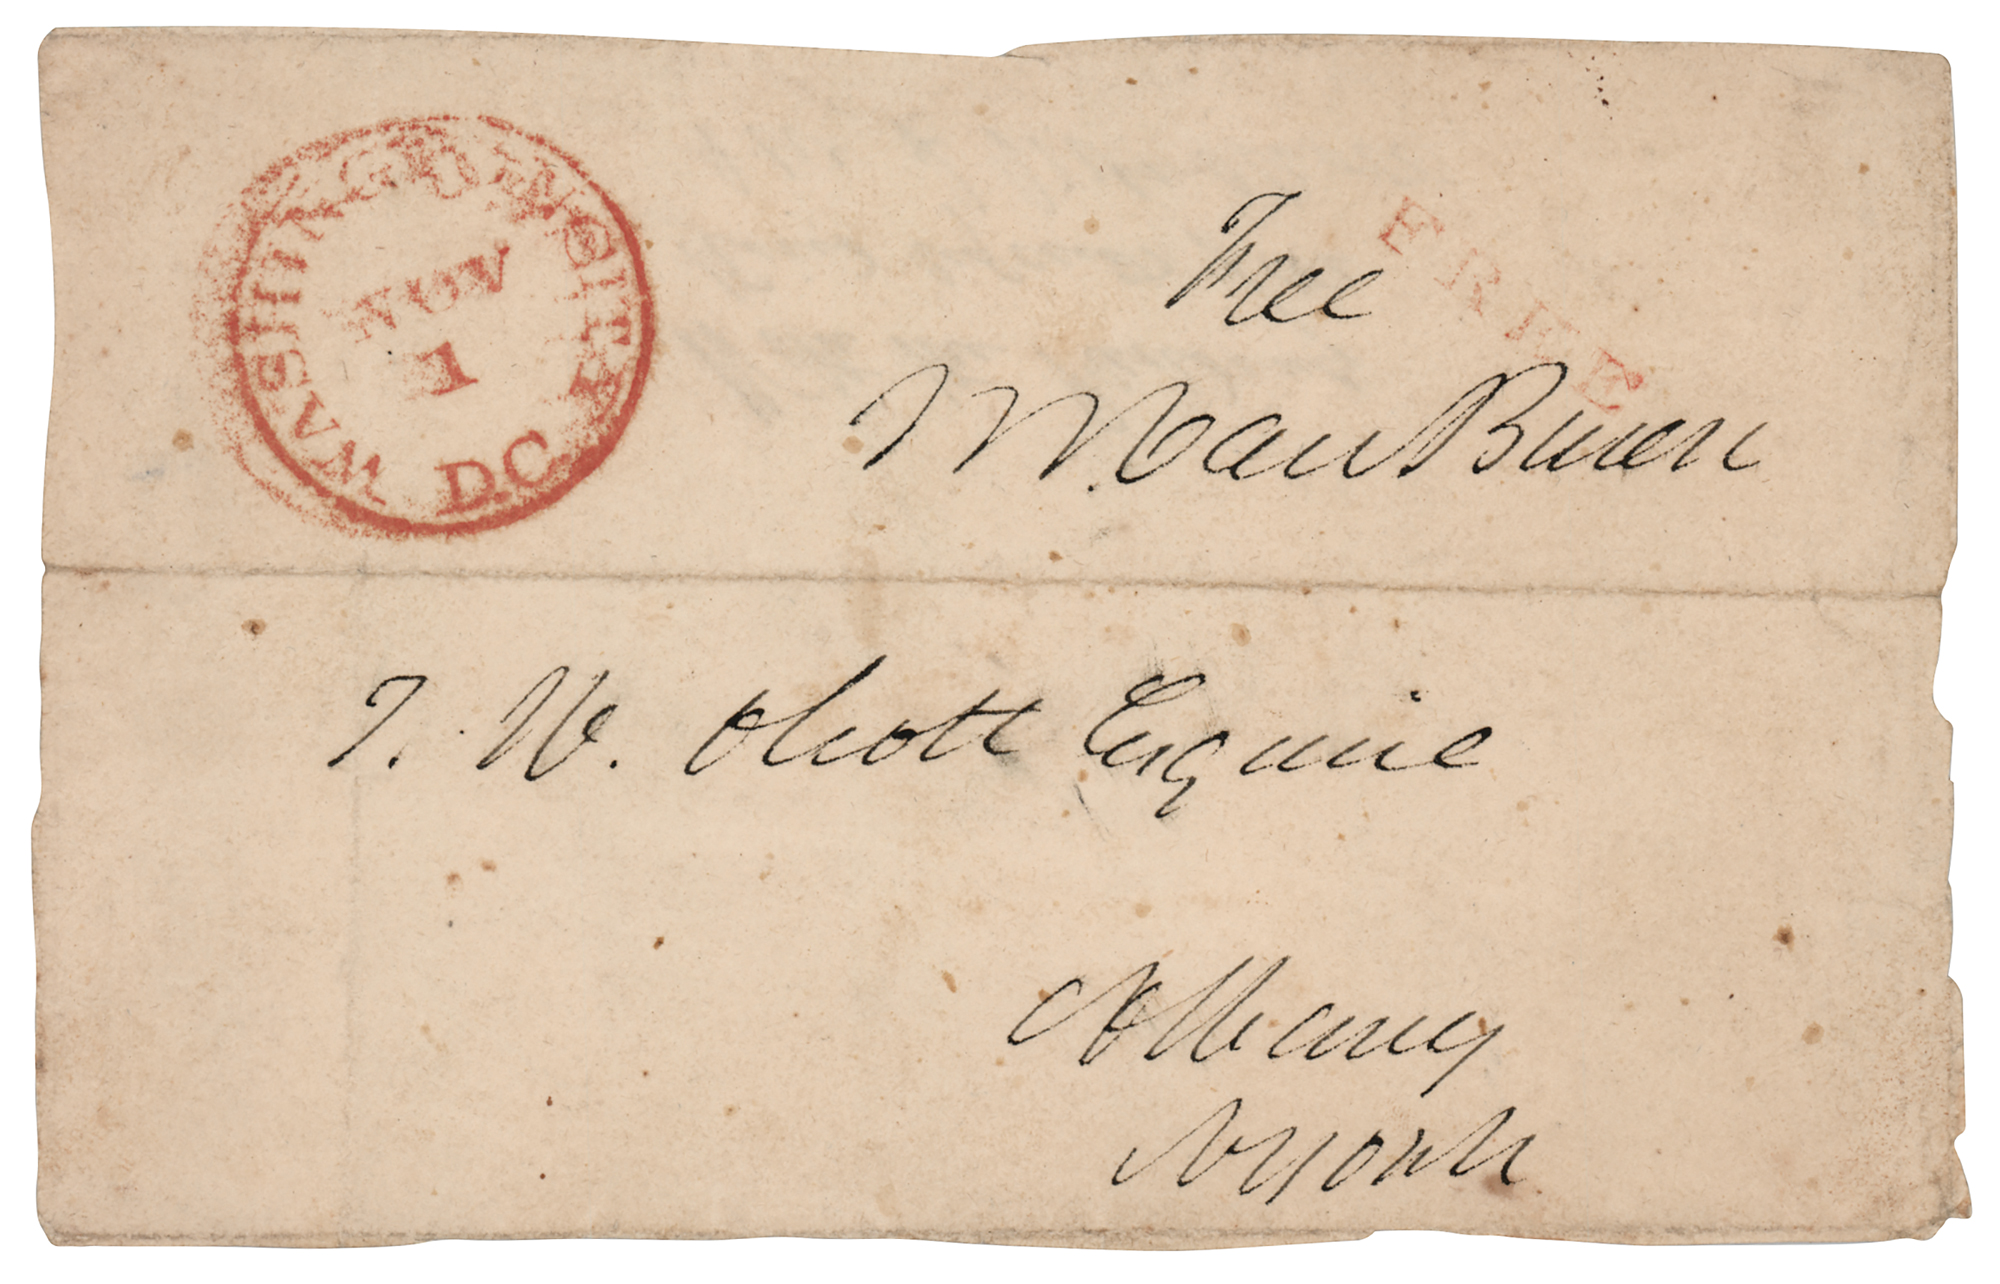 WASHINGTON CITY
NOV
1
D.C.
FREE
Free
M. Van Buren
T. W. Olcott Esquire
Albany
N York